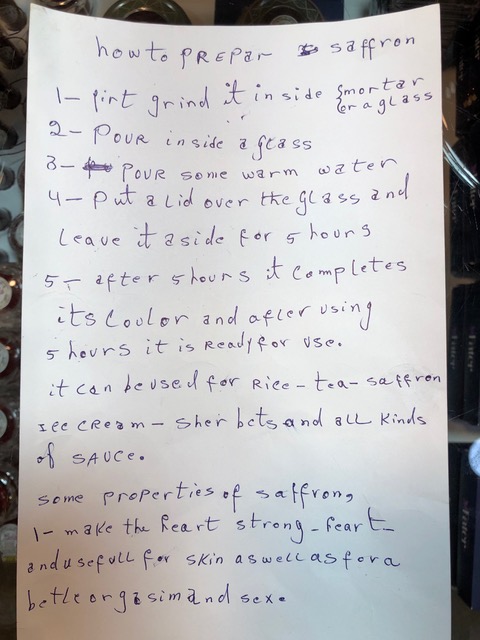 how to PREPar saffron
1- firt grind it in side {mortar
or a glass
2- POUR inside a glass
3- POUR some warm water
4- Put a lid over the glass and
Leave it aside for 5 hours
5- after 5 hours it Completes
its Coulor and after using
5 hours it is Ready for use.
it can be used for Rice - tea - saffron
ice cream - sherbets and all kinds
of SAUCe.
some properties of saffron,
1- make the heart strong - heart -
and usefull for skin as well as for a
betle orgasim and sex.